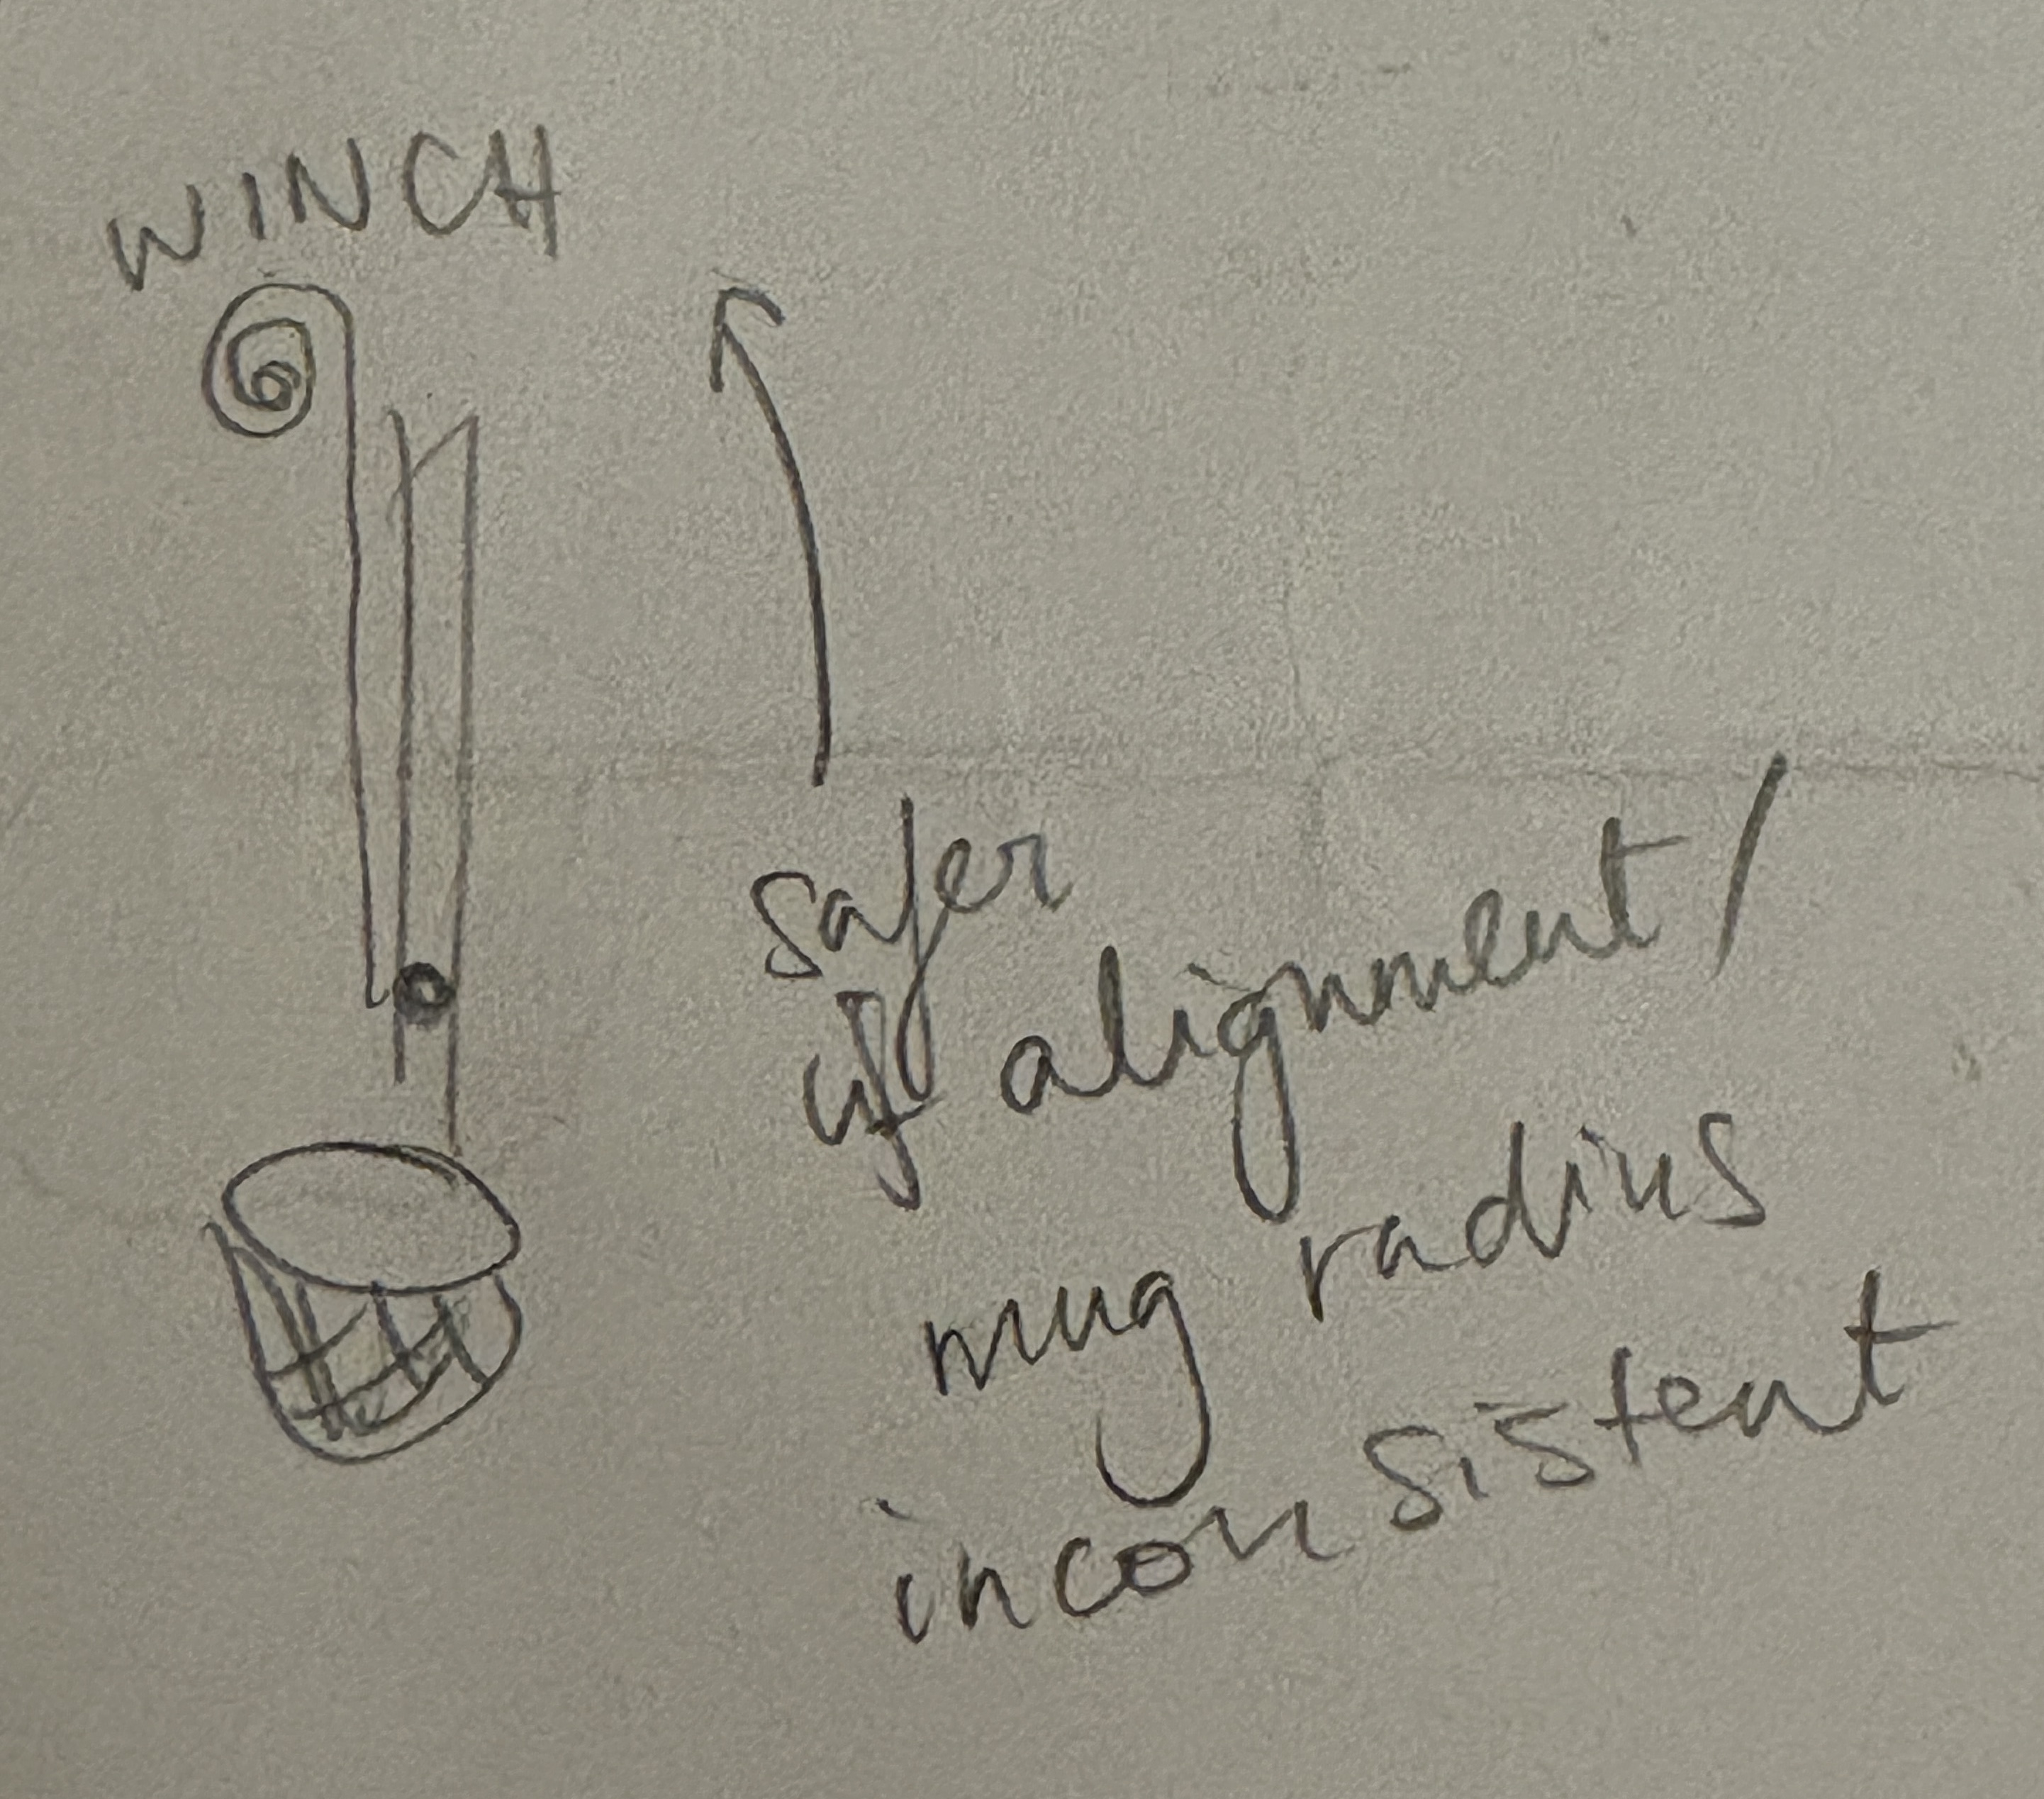 WINCH
safer
if alignment/
mug radius
inconsistent